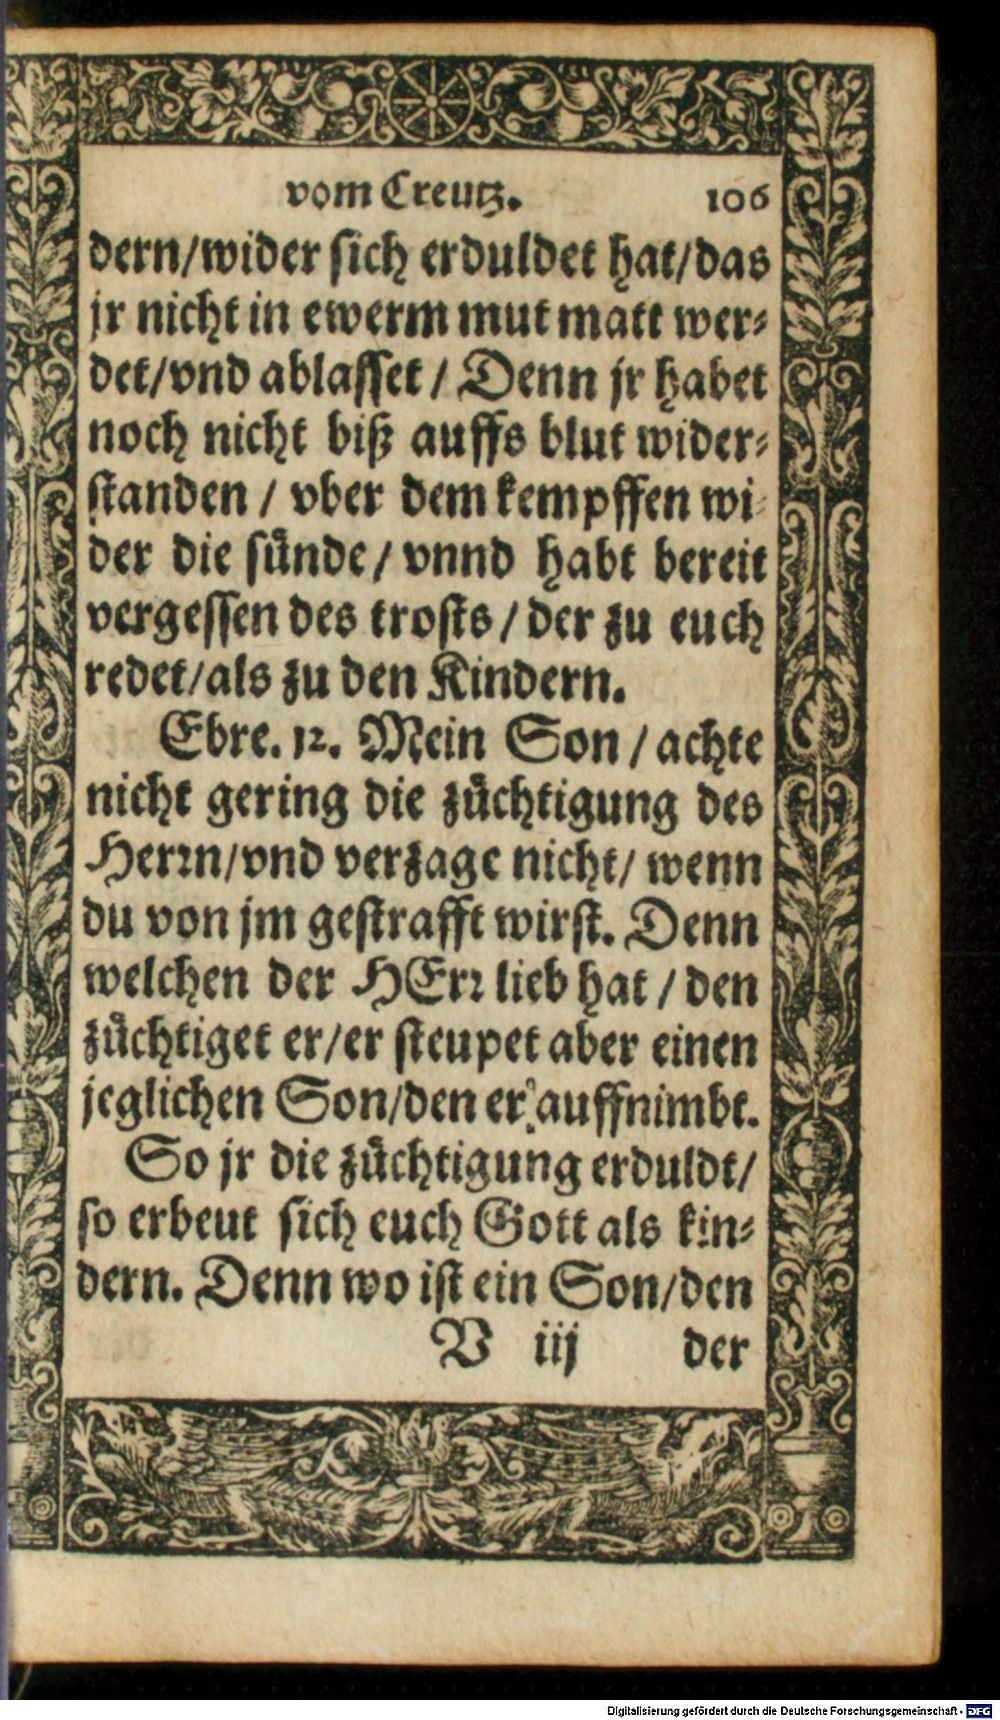 vom Creutz. 106
dern/wider sich erduldet hat/das
jr nicht in ewerm mut matt wer⸗
det/vnd ablasset / Denn jr habet
noch nicht biß auffs blut wider⸗
standen / vber dem kempffen wi⸗
der die sünde / vnnd habt bereit
vergessen des trosts / der zu euch
redet/als zu den Kindern.
Ebre. 12. Mein Son / achte
nicht gering die züchtigung des
Herrn/vnd verzage nicht/ wenn
du von jm gestrafft wirst. Denn
welchen der HErr lieb hat / den
züchtiget er/er steupet aber einen
jeglichen Son/den er auffnimbt.
So jr die züchtigung erduldt/
so erbeut sich euch Gott als kin⸗
dern. Denn wo ist ein Son/den
V iij der
Digitalisierung gefördert durch die Deutsche Forschungsgemeinschaft - DFG